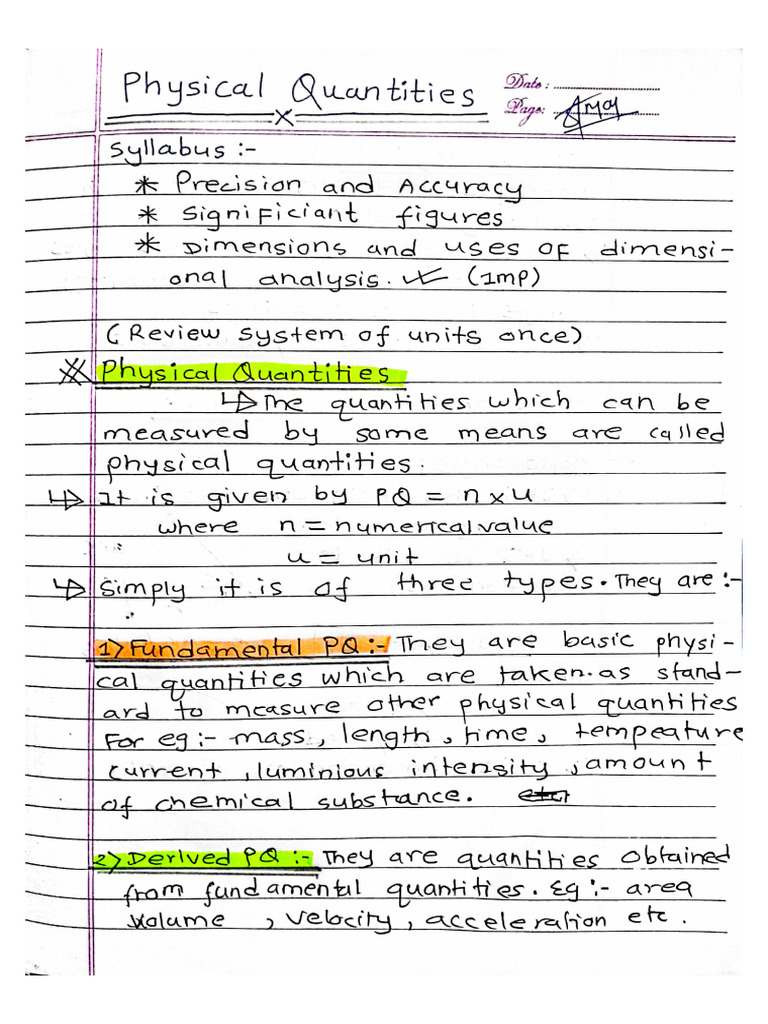 Physical Quantities
Date:
Page:
Syllabus :-
* Precision and Accuracy
* Significiant figures
* Dimensions and uses of dimensi-
onal analysis. (Imp)
(Review system of units once)
Physical Quantities
↳ The quantities which can be
measured by some means are called
physical quantities.
↳ It is given by PQ = n x u
where n = numerical value
u = unit
↳ Simply it is of three types. They are :-
1) Fundamental PQ :- They are basic physi-
cal quantities which are taken as stand-
ard to measure other physical quantities
For eg :- mass, length, time, tempeature
current, luminious intensity, amount
of chemical substance.
2) Derived PQ :- They are quantities obtained
from fundamental quantities. Eg :- area
volume, velocity, acceleration etc.